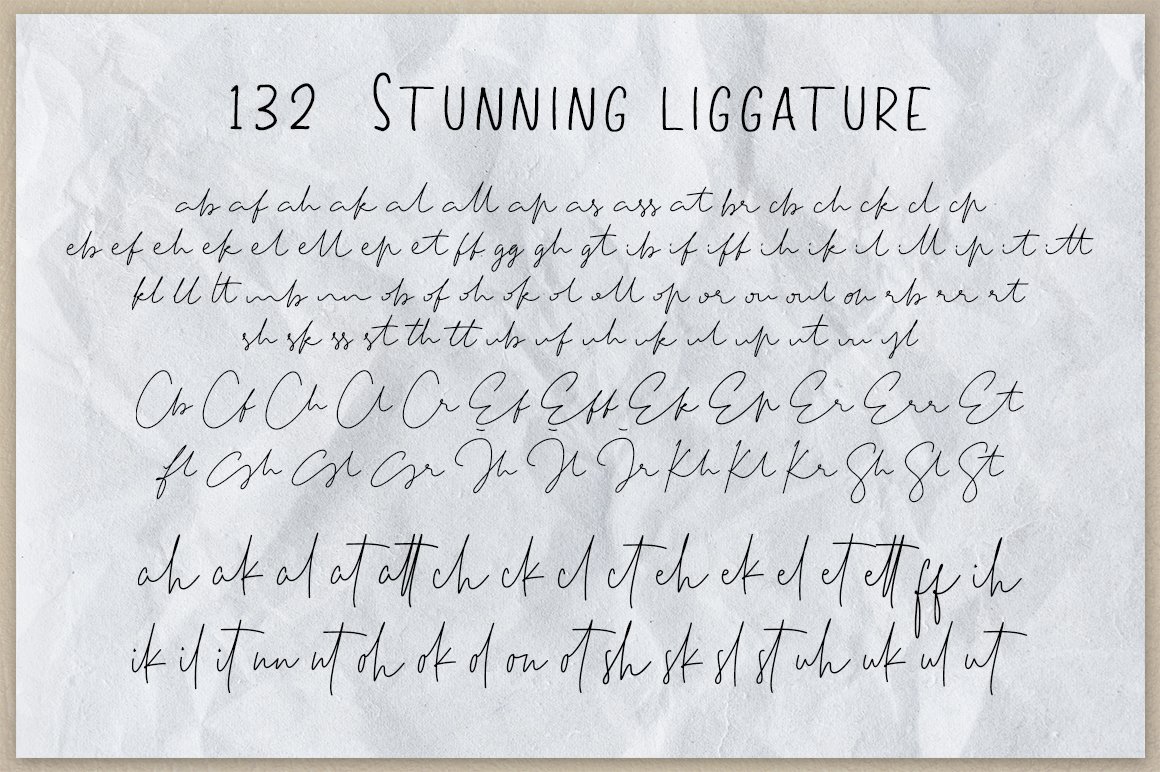 132 Stunning liggature
ab af ah ak al all ap as ass at br cb ch ck cl cp
eb ef eh ek el ell ep et ff gg gh gt ib if iff ih ik il ill ip it itt
kl ll lt mb nn ob of oh ok ol oll op or ou oul ov rb rr rt
sh sk ss st th tt ub uf uh uk ul up ut yl
Cb Cf Ch Cl Cr Ef Eff Ek Ep Er Err Et
fl Gh Gl Gr Jh Jl Jr Kh Kl Kr Sh Sl St
ah ak al at att ch ck cl ct eh ek el et ett ff ih
ik il it nn nt oh ok ol on ot sh sk sl st uh uk ul ut